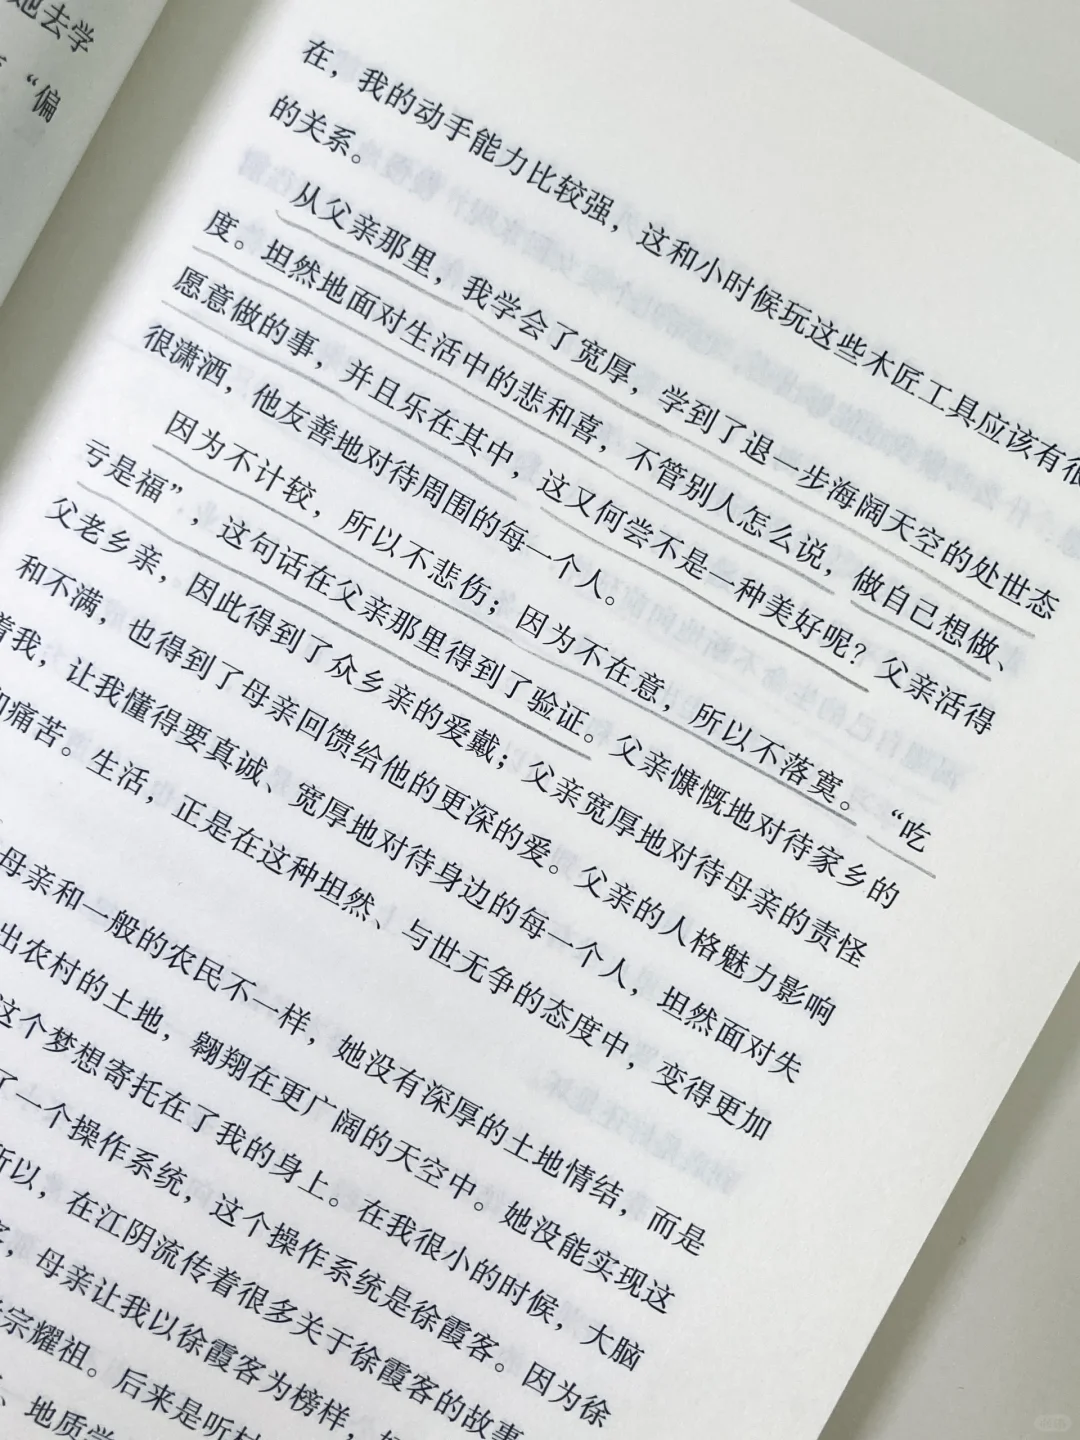 她去学
“偏
在，我的动手能力比较强，这和小时候玩这些木匠工具应该有很
的关系。
从父亲那里，我学会了宽厚，学到了退一步海阔天空的处世态
度。坦然地面对生活中的悲和喜，不管别人怎么说，做自己想做、
愿意做的事，并且乐在其中，这又何尝不是一种美好呢？父亲活得
很潇洒，他友善地对待周围的每一个人。
因为不计较，所以不悲伤；因为不在意，所以不落寞。“吃
亏是福”，这句话在父亲那里得到了验证。父亲慷慨地对待家乡的
父老乡亲，因此得到了众乡亲的爱戴；父亲宽厚地对待母亲的责怪
和不满，也得到了母亲回馈给他的更深的爱。父亲的人格魅力影响
着我，让我懂得要真诚、宽厚地对待身边的每一个人，坦然面对失
和痛苦。生活，正是在这种坦然、与世无争的态度中，变得更加
母亲和一般的农民不一样，她没有深厚的土地情结，而是
出农村的土地，翱翔在更广阔的天空中。她没能实现这
这个梦想寄托在了我的身上。在我很小的时候，大脑
了一个操作系统，这个操作系统是徐霞客。因为徐
所以，在江阴流传着很多关于徐霞客的故事
，母亲让我以徐霞客为榜样，
宗耀祖。后来是听村
、地质学